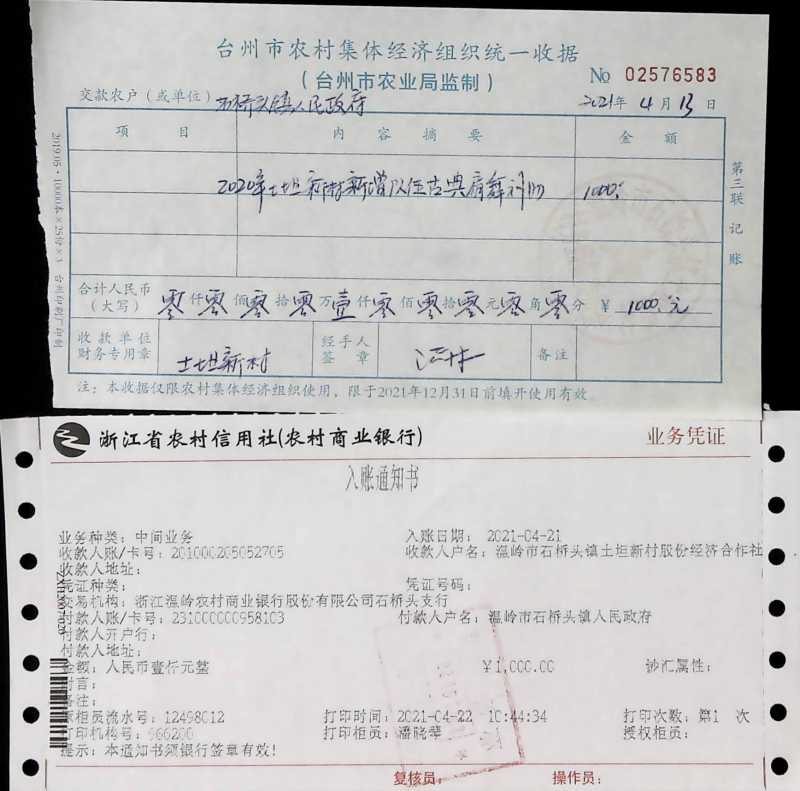 台州市农村集体经济组织统一收据
(台州市农业局监制)
No 02576583
交款农户(或单位) 石桥头镇人民政府 2021年 4月 13日
项 目 内 容 摘 要 金 额
2020年土坦新村新增以往古典肩舞补助 1000.
合计人民币(大写) 零仟零佰零拾零万壹仟零佰零拾零元零角零分 ¥ 1000.元
收款单位财务专用章 土坦新村 经手人签章 备注
注:本收据仅限农村集体经济组织使用,限于2021年12月31日前填开使用有效。
第三联 记账
2019.05·10000本×25份×3 台州印刷厂印制
浙江省农村信用社(农村商业银行) 业务凭证
入账通知书
业务种类:中间业务 入账日期: 2021-04-21
收款人账/卡号:201000205052705 收款人户名:温岭市石桥头镇土坦新村股份经济合作社
收款人地址:
凭证种类: 凭证号码:
交易机构:浙江温岭农村商业银行股份有限公司石桥头支行
付款人账/卡号:231000000958103 付款人户名:温岭市石桥头镇人民政府
付款人开户行:
付款人地址:
金额:人民币壹仟元整 ¥1,000.00 涉汇属性:
附言:
备注:
原柜员流水号:12498012 打印时间:2021-04-22 10:44:34 打印次数:第1 次
打印机构号:966200 打印柜员:潘晓琴 授权柜员:
提示:本通知书须银行签章有效!
复核员: 操作员: